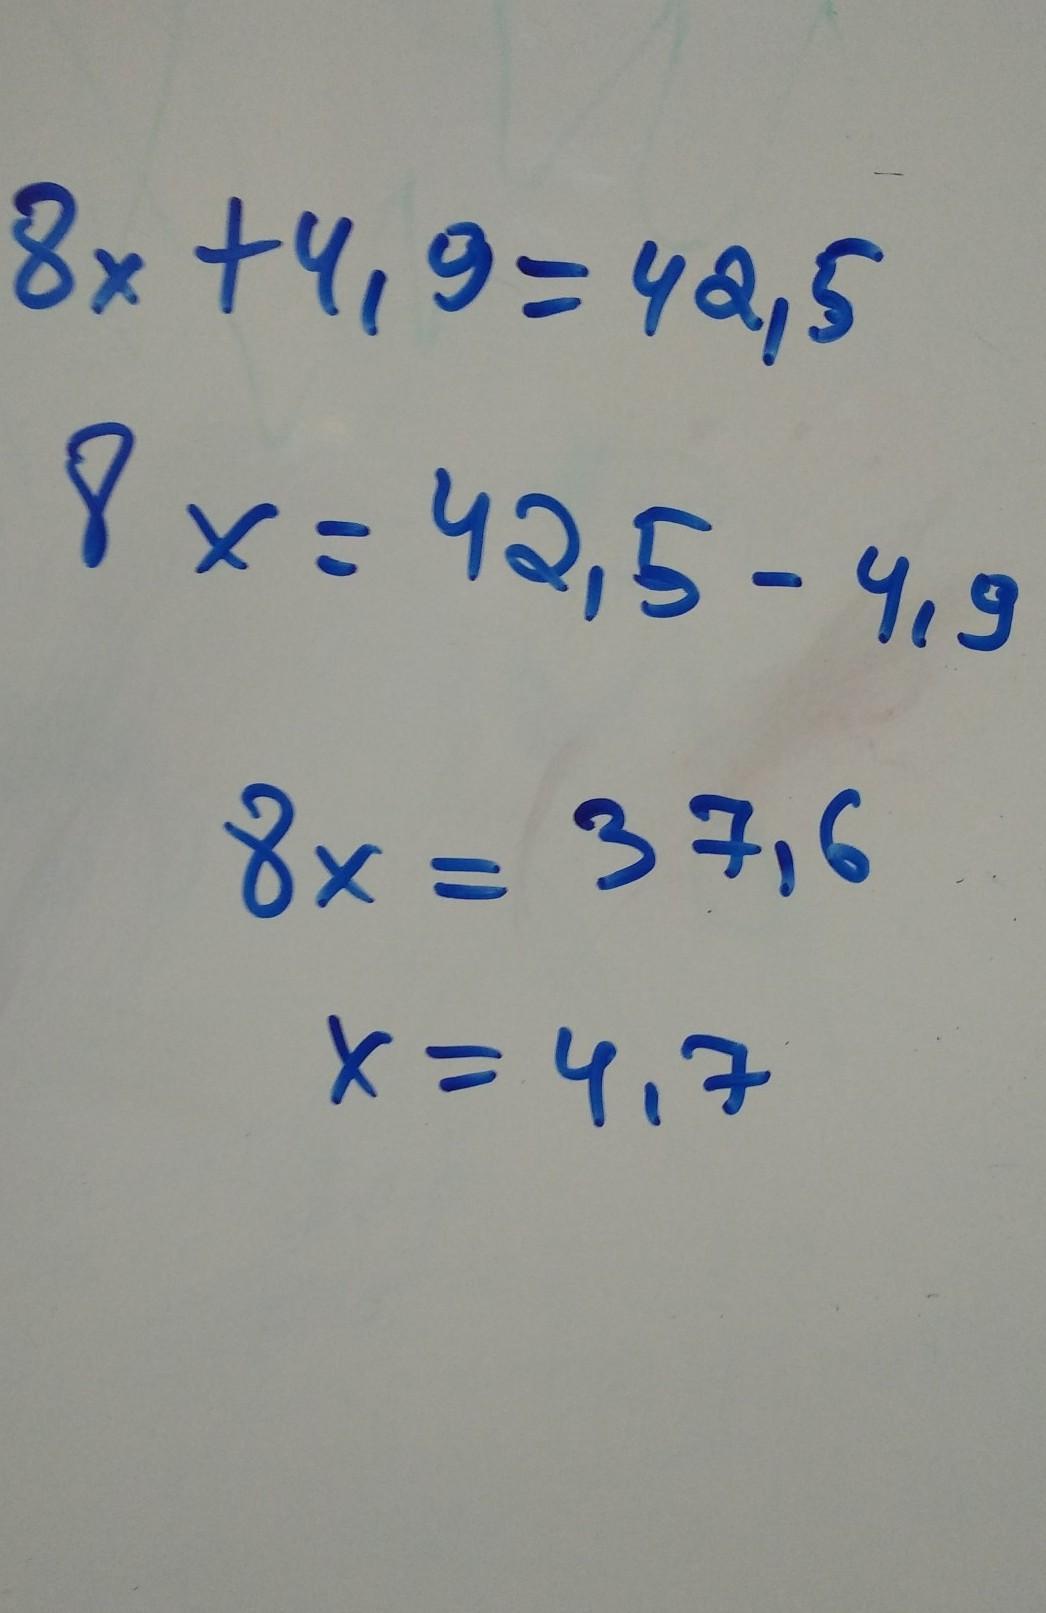 8x + 4,9 = 42,5
8x = 42,5 - 4,9
8x = 37,6
x = 4,7